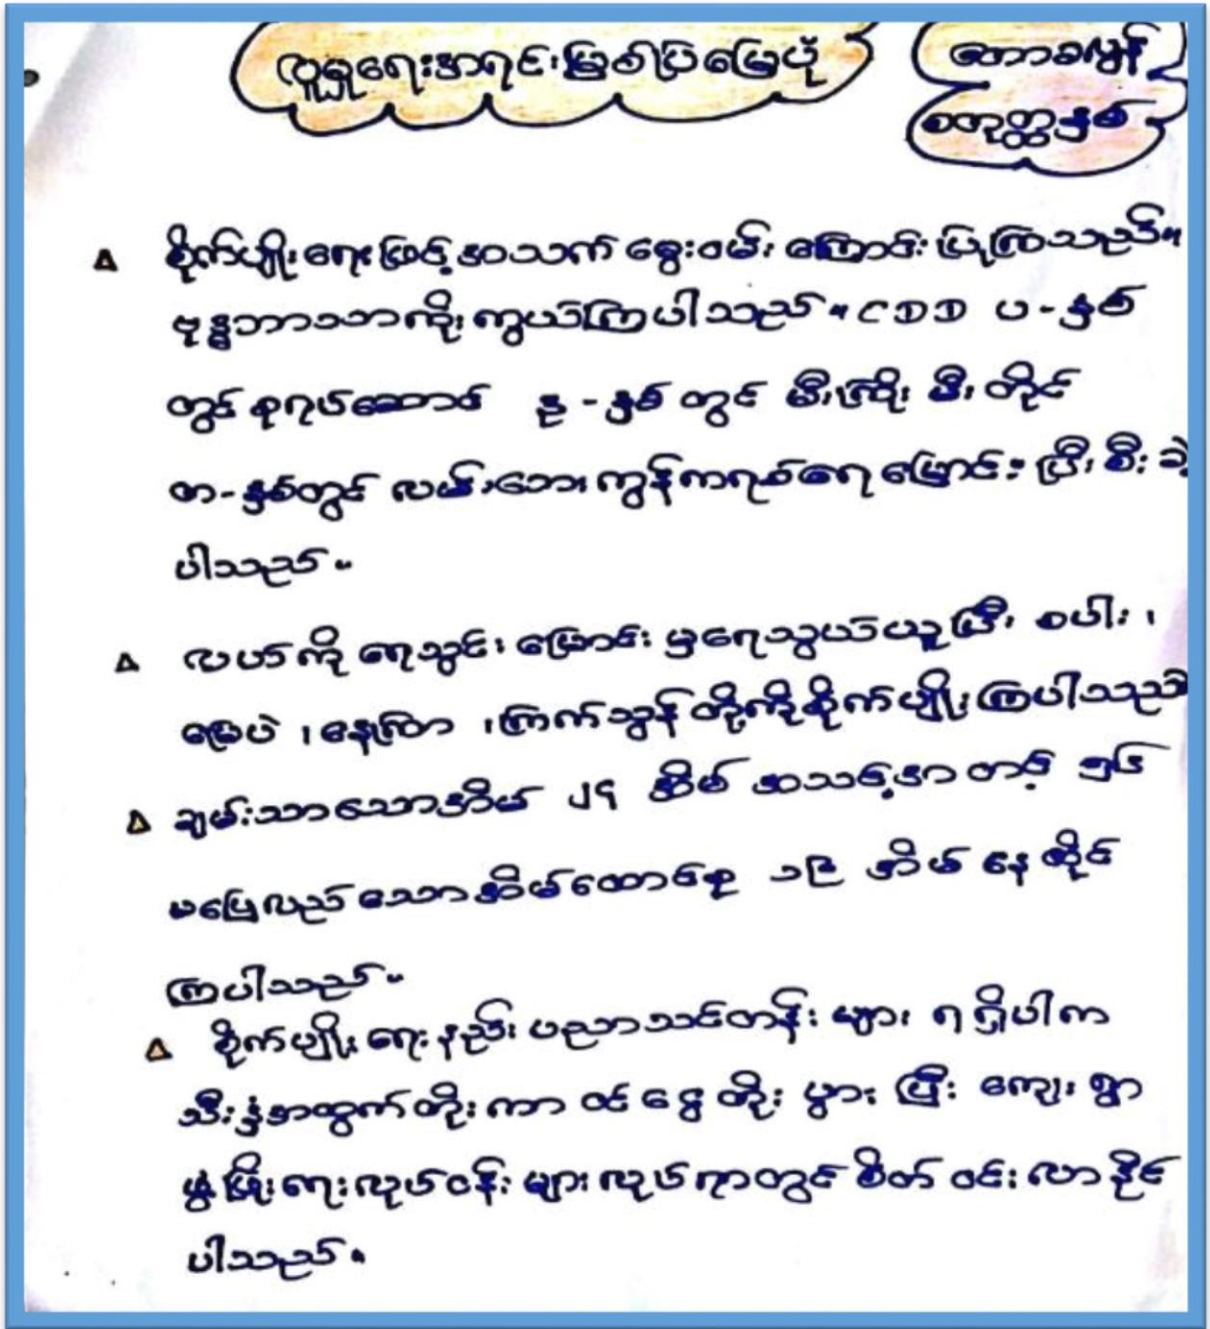 လူမှုရေးအရင်းမြစ်ပြမြေပုံ
တောခလွန်
စကုတ္တနှစ်
စိုက်ပျိုးရေးဖြင့်အသက်မွေးဝမ်းကြောင်းပြုကြသည်။
ဗုဒ္ဓဘာသာကိုးကွယ်ကြပါသည်။ CDD ပ-နှစ်
တွင် စုရပ်ဆောင် ဒု-နှစ်တွင် မီးကြိုး မီးတိုင်
တ-နှစ်တွင် လမ်းဘေးကွန်ကရစ်ရေမြောင်း ပြီးစီးခဲ့
ပါသည်။
လယ်ကို ရေသွင်းမြောင်းမှရေသွယ်ယူပြီး စပါး၊
မြေပဲ၊ နေကြာ၊ ကြက်သွန်တို့ကိုစိုက်ပျိုးကြပါသည်
ချမ်းသာသောအိမ် ၂၄ အိမ် အသင့်အတင့် ၅၆
မပြေလည်သောအိမ်ထောင်စု ၁၉ အိမ် နေထိုင်
ကြပါသည်။
စိုက်ပျိုးရေးနည်းပညာသင်တန်းများ ရရှိပါက
သီးနှံအထွက်တိုးကာ ဝင်ငွေတိုးပွားပြီး ကျေးရွာ
ဖွံ့ဖြိုးရေးလုပ်ငန်းများလုပ်ရာတွင် စိတ်ဝင်းလာနိုင်
ပါသည်။